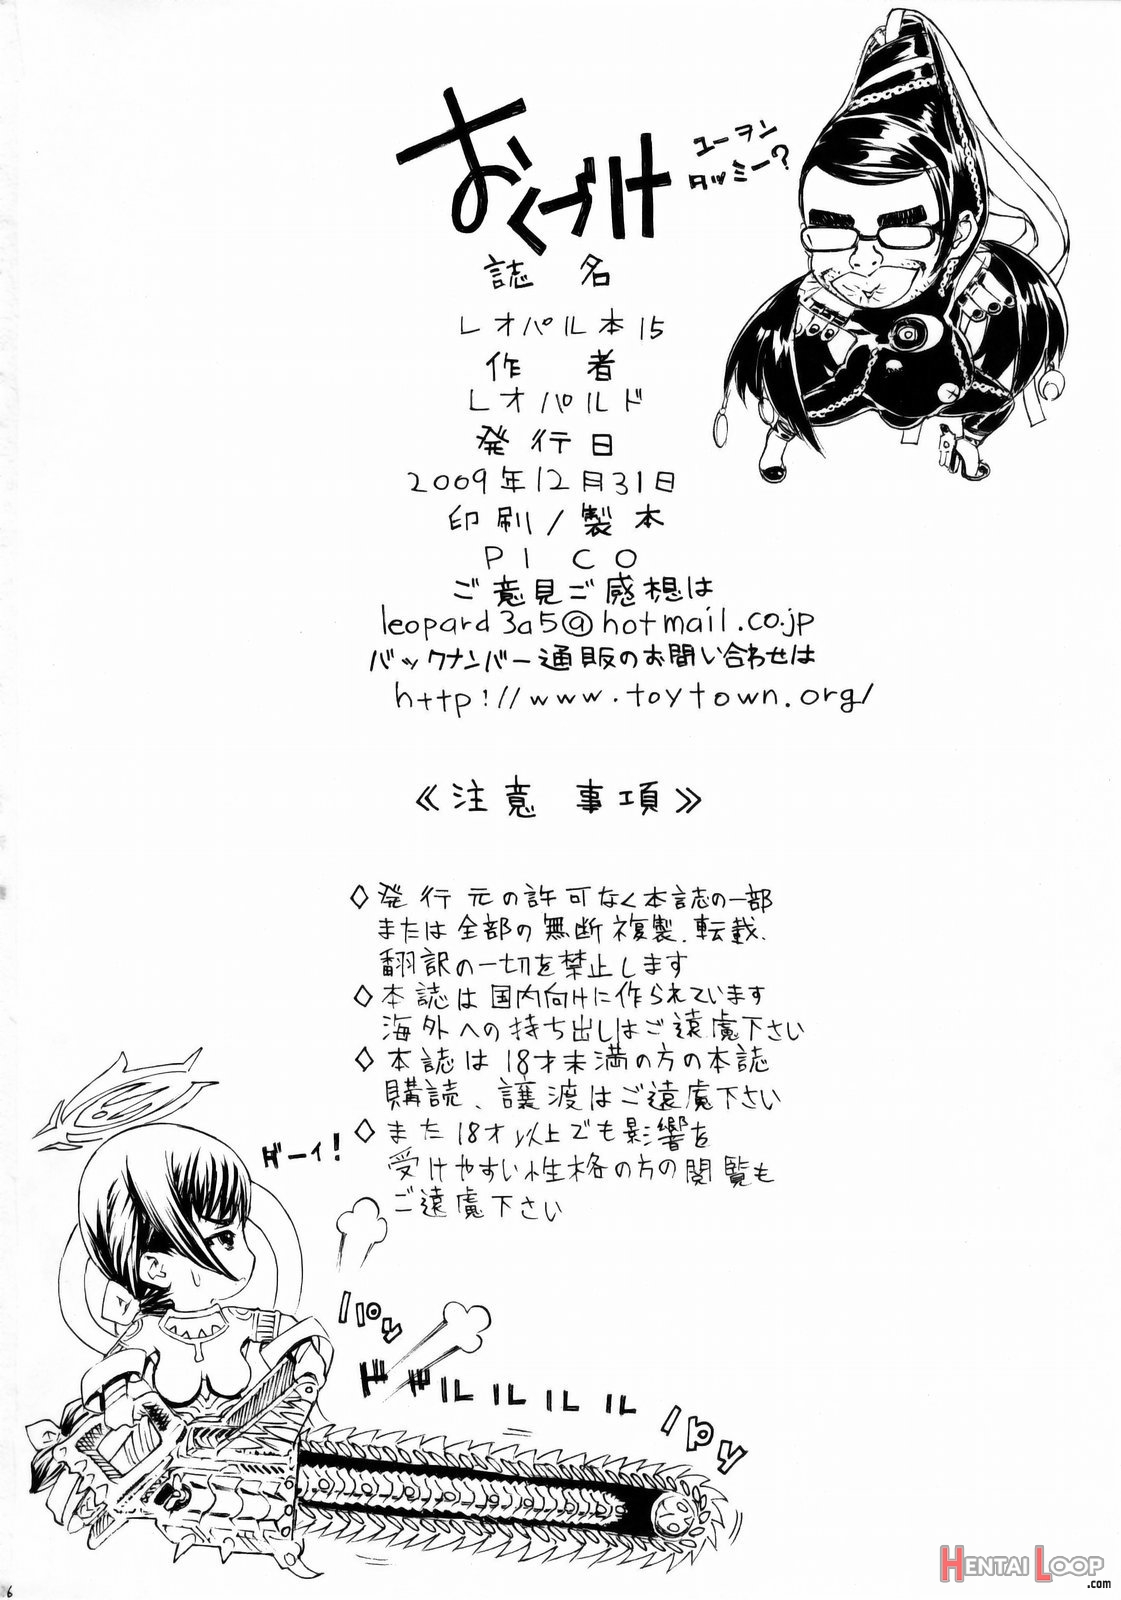 おくづけ
ユーヲン
タッミー?
誌名
レオパル本15
作者
レオパルド
発行日
2009年12月31日
印刷/製本
PICO
ご意見ご感想は
leopard3a5@hotmail.co.jp
バックナンバー通販のお問い合わせは
http://www.toytown.org/
《注意 事項》
◇発行元の許可なく本誌の一部
または全部の無断複製、転載、
翻訳の一切を禁止します
◇本誌は国内向けに作られています
海外への持ち出しはご遠慮下さい
◇本誌は18才未満の方の本誌
購読、譲渡はご遠慮下さい
◇また18才以上でも影響を
受けやすい性格の方の閲覧も
ご遠慮下さい
ダーイ!
パpッ
ドドルルルルル
パpッ
6
HENTAI LOOP
.com